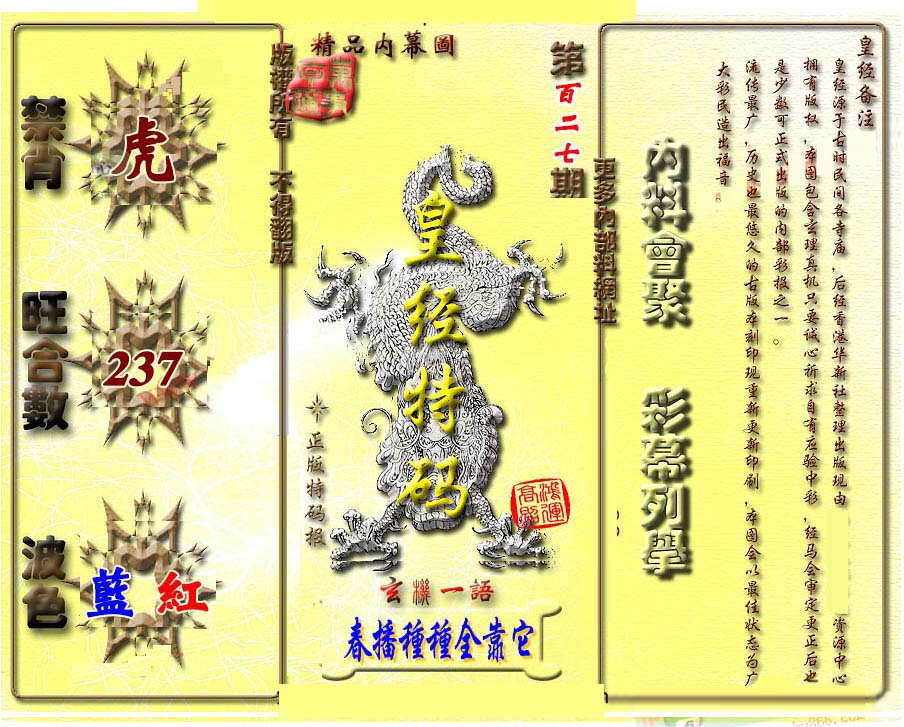 精品内幕圖
第百二七期
版權所有 不得翻版
更多內部料網址
禁肖
虎
旺合數
237
波色
藍 紅
皇经特码
正版特码报
鴻運高照
玄機一語
春播種種全靠它
内料會聚
彩幕列舉
皇经备注
皇经源于古时民间各寺庙，后经香港华新社整理出版现由 资源中心
拥有版权，本图包含玄理真机只要诚心祈求自有应验中彩，经马会审定更正后也
是少数可正式出版的内部彩报之一。
流传最广，历史也最悠久的古版本刻印现重新更新印刷，本图会以最佳状态为广
大彩民造出福音